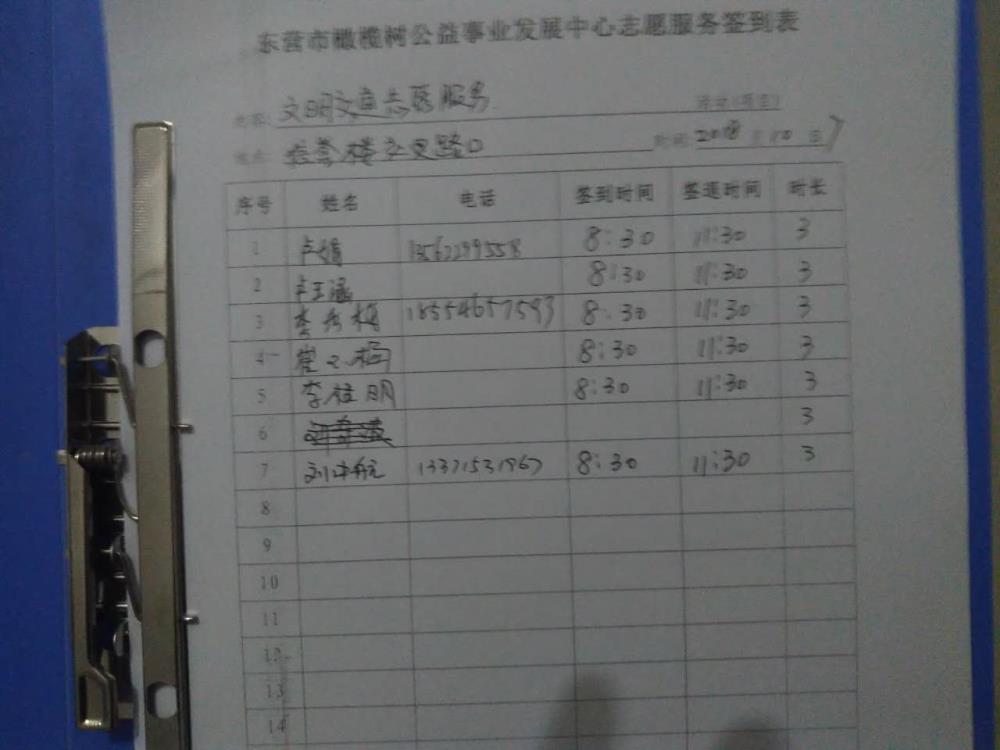 东营市橄榄树公益事业发展中心志愿服务签到表
文明交通志愿服务 活动(项目)
路口 时间:
序号 姓名 电话 签到时间 签退时间 时长
1 卢娟 8:30 11:30 3
2 卢玉涵 8:30 11:30 3
3 李秀梅 18554657593 8:30 11:30 3
4 崔 梅 8:30 11:30 3
5 李桂明 8:30 11:30 3
6 3
7 刘 航 13371531967 8:30 11:30 3
8
9
10
11
12
13
14